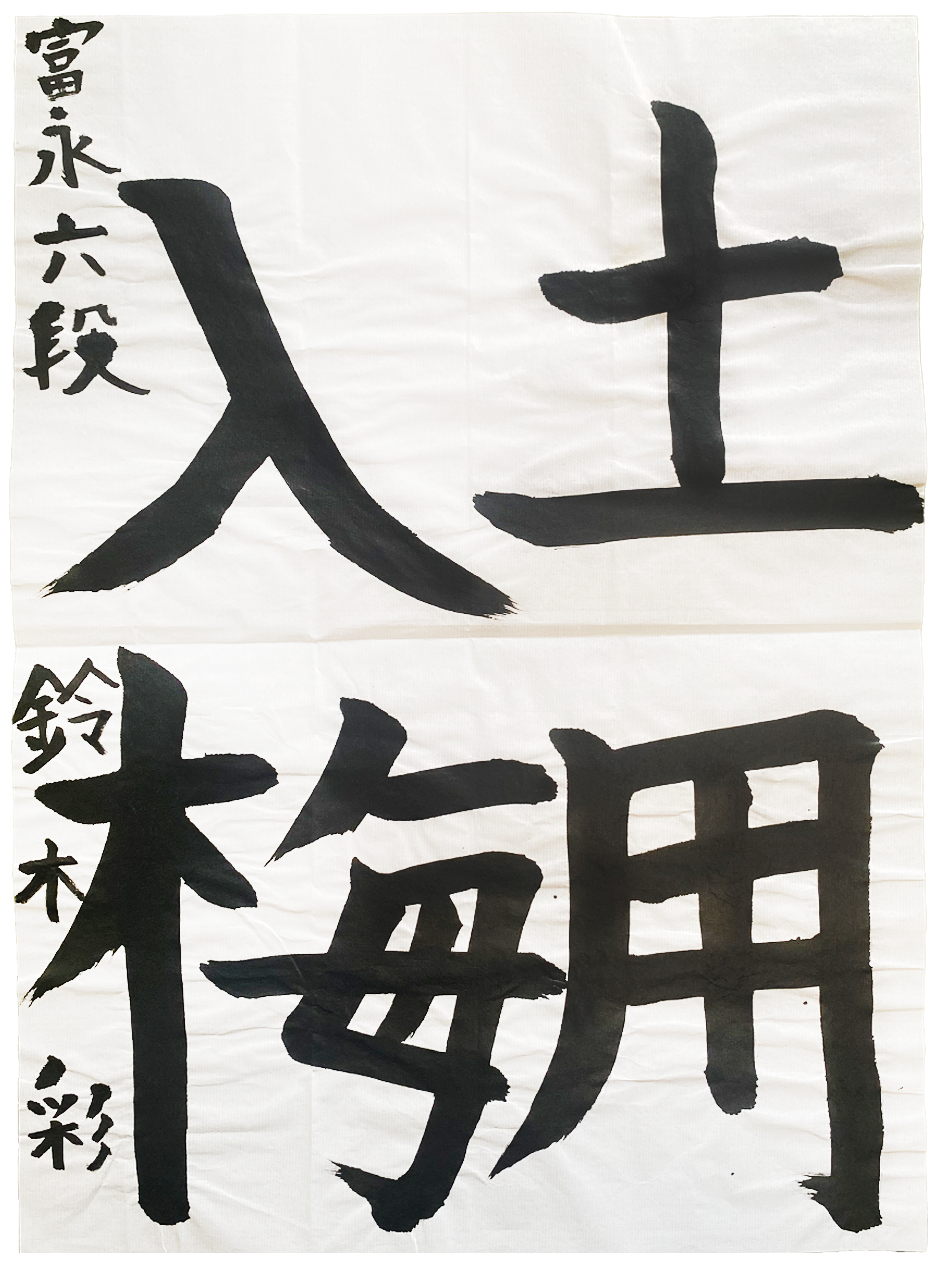 土用
入梅
富永六段 鈴木彩